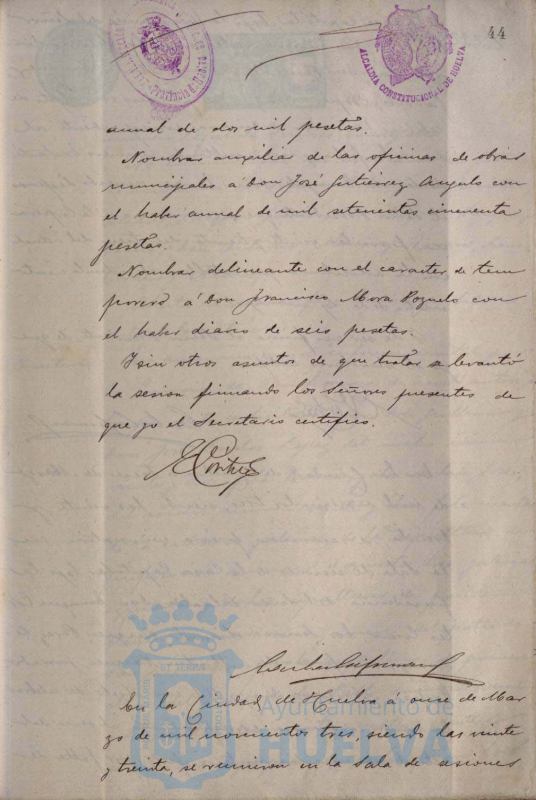 44
ALCALDIA CONSTITUCIONAL DE HUELVA
anual de dos mil pesetas.
Nombrar auxiliar de las oficinas de obras
municipales á Don José Gutierrez Angulo con
el haber anual de mil setecientas cincuenta
pesetas.
Nombrar delineante con el caracter de tem
porero á Don Francisco Mora Pozuelo con
el haber diario de seis pesetas.
Y sin otros asuntos de que tratar se levantó
la sesion firmando los Señores presentes de
que yo el Secretario certifico.
En la Ciudad de Huelva á once de Mar
zo de mil novecientos tres, siendo las veinte
y treinta, se reunieron en la Sala de sesiones
Ayuntamiento de
HUELVA